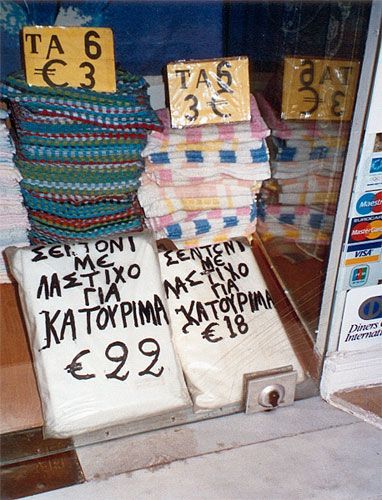 ΤΑ 6
€ 3
ΤΑ 6
3 €
ΣΕΝΤΟΝΙ
ΜΕ
ΛΑΣΤΙΧΟ
ΓΙΑ
ΚΑΤΟΥΡΙΜΑ
€ 22
ΣΕΝΤΟΝΙ
ΜΕ
ΛΑΣΤΙΧΟ
ΓΙΑ
ΚΑΤΟΥΡΙΜΑ
€ 18
Maestro
EUROCARD
MasterCard
VISA
JCB
Diners
International